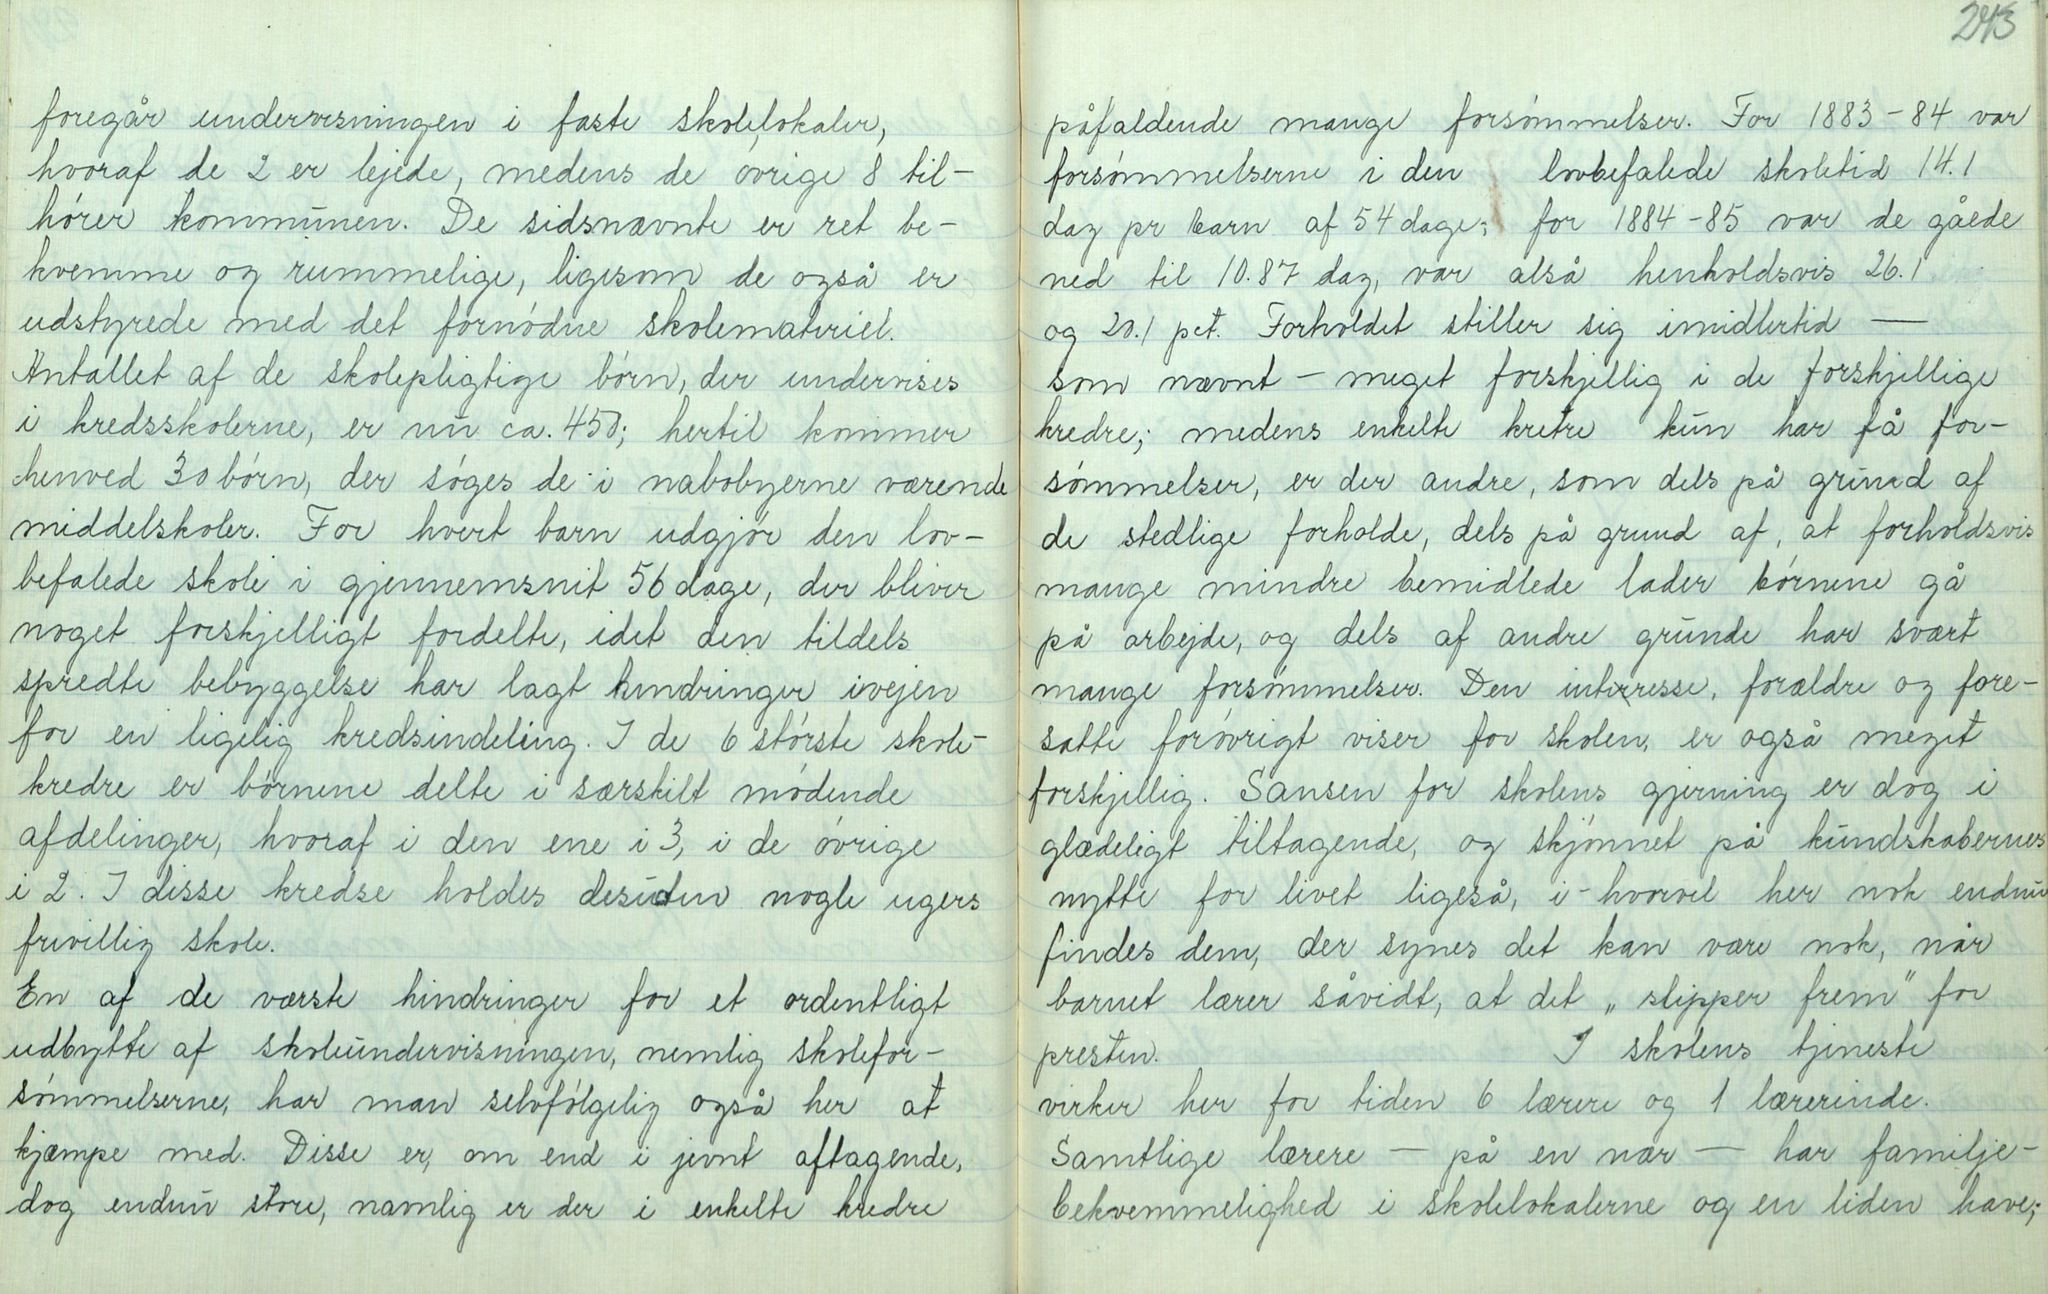 foregår undervisningen i faste skolelokaler,
hvoraf de 2 er lejede, medens de øvrige 8 til-
hører kommunen. De sidsnævnte er ret be-
kvemme og rummelige, ligesom de også er
udstyrede med det fornødne skolemateriel.
Antallet af de skolepligtige børn, der undervises
i kredsskolerne, er nu ca. 450; hertil kommer
henved 30 børn, der søges de i nabobyerne værende
middelskoler. For hvert barn udgjør den lov-
befalede skole i gjennemsnit 56 dage, der bliver
noget forskjelligt fordelte, idet den tildels
spredte bebyggelse har lagt hindringer ivejen
for en ligelig kredsindeling. I de 6 største skole-
kredre er børnene delte i særskilt mødende
afdelinger, hvoraf i den ene i 3, i de øvrige
i 2. I disse kredse holdes desuden nogle ugers
frivillig skole.
En af de værste hindringer for et ordentligt
udbytte af skoleundervisningen, nemlig skolefor-
sømmelserne, har man selvfølgelig også her at
kjæmpe med. Disse er, om end i jevnt aftagende,
dog endnu store, namlig er der i enkelte kredre
243
påfaldende mange forsømmelser. For 1883-84 var
forsømmelserne i den lovbefalede skoletid 14.1
dag pr barn af 54 dage; for 1884-85 var de gåede
ned til 10.87 dag, var alså henholdsvis 26.1
og 20.1 pct. Forholdet stiller sig imidlertid —
som nævnt - meget forskjellig i de forskjellige
kredre; medens enkelte kretre kun har få for-
sømmelser, er der andre, som dels på grund af
de stedlige forholde, dels på grund af, at forholdsvis
mange mindre bemidlede lader børnene gå
på arbejde, og dels af andre grunde har svært
mange forsømmelser. Den interresse, forældre og fore-
satte forøvrigt viser for skolen, er også meget
forskjellig. Sansen for skolens gjerning er dog i
glædeligt tiltagende, og skjønnet på kundskabernes
nytte for livet ligeså, i-hvorvel her nok endnu
findes dem, der synes det kan være nok, når
barnet lærer såvidt, at det „slipper frem" for
presten. I skolens tjeneste
virker her for tiden 6 lærere og 1 lærerinde.
Samtlige lærere — på en nær — har familje-
bekvemmelighed i skolelokalerne og en liden have;